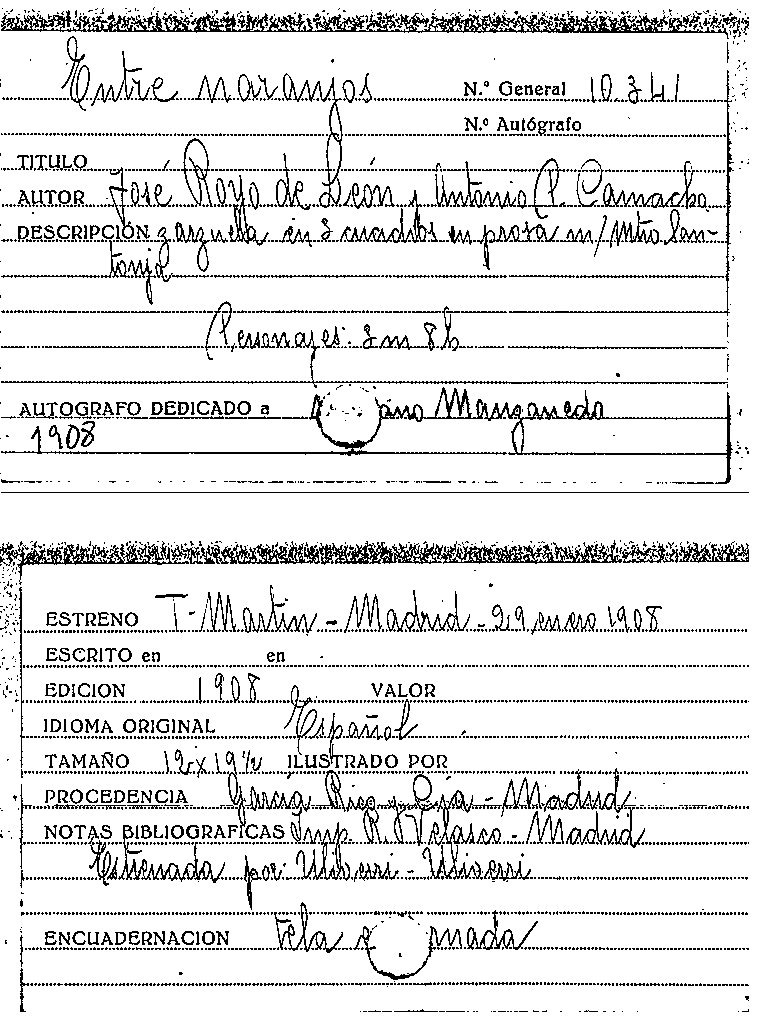 Entre naranjos
N.º General 10341
N.º Autógrafo
TITULO
AUTOR José Royo de León y Antonio P. Camacho
DESCRIPCIÓN zarzuella en 3 cuadros en prosa m/ Mtro San-
tonja
Personajes: 3 m 8 h
AUTOGRAFO DEDICADO a Manganedo
1908
ESTRENO T- Martin - Madrid - 29 enero 1908
ESCRITO en en
EDICION 1908 VALOR
IDIOMA ORIGINAL Español
TAMAÑO 12x19½ ILUSTRADO POR
PROCEDENCIA García Rico y Cía - Madrid
NOTAS BIBLIOGRAFICAS Imp. R. Velasco - Madrid
Estrenada por: Uliverri - Uliverri
ENCUADERNACION Tela